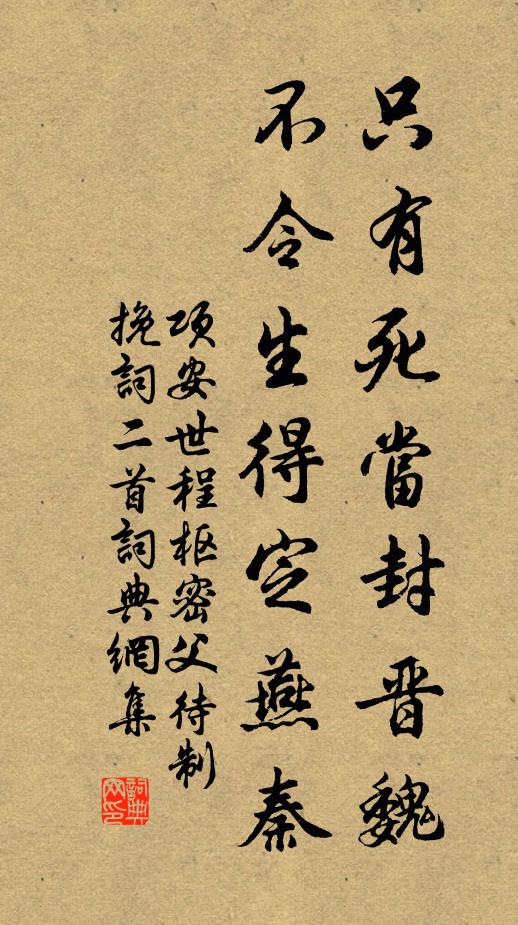 只有死當封晋魏
不令生得定燕秦
項安世程枢密父待制
挽詞二首詞典網集
詞典網印